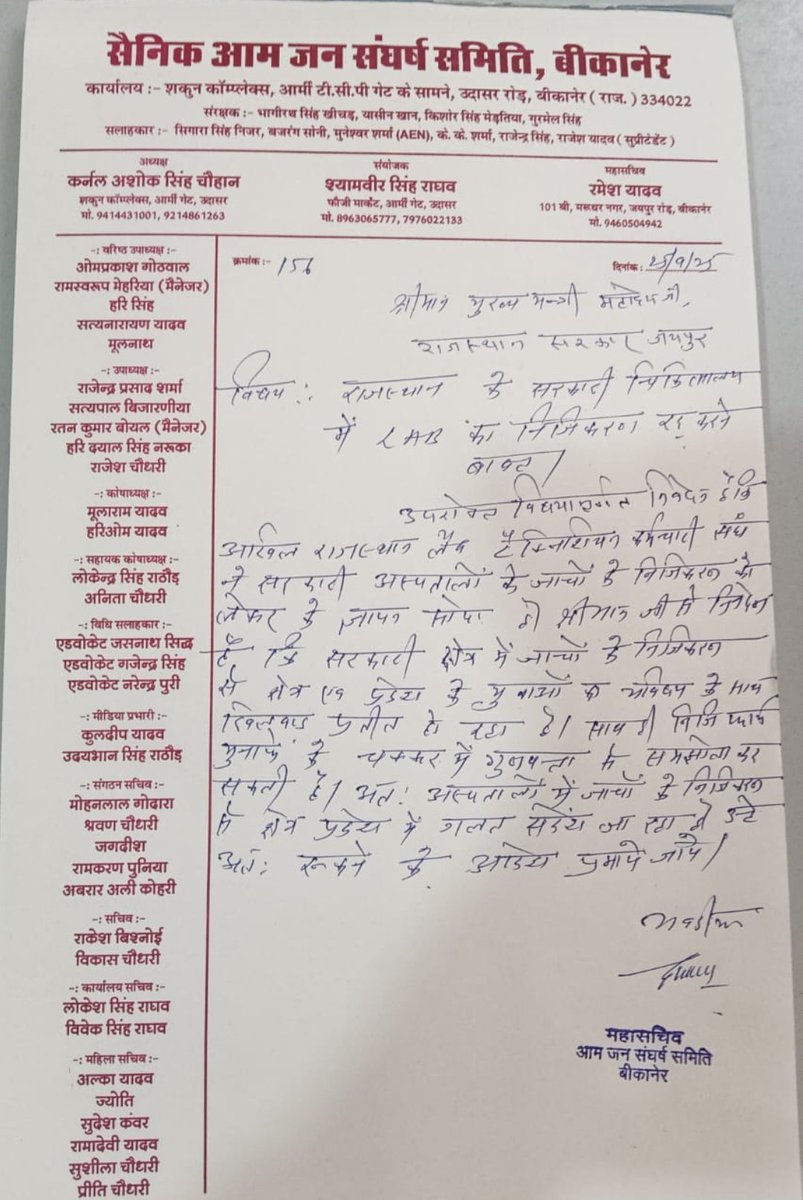 सैनिक आम जन संघर्ष समिति, बीकानेर
कार्यालय :- शकुन कॉम्प्लेक्स, आर्मी टी.सी.पी गेट के सामने, उदासर रोड़, बीकानेर ( राज. ) 334022
संरक्षक :- भागीरथ सिंह खीचड़, यासीन खान, किशोर सिंह मेड़तिया, गुरमेल सिंह
सलाहकार :- सिगारा सिंह निजर, बजरंग सोनी, मुनेश्वर शर्मा (AEN), के. के. शर्मा, राजेन्द्र सिंह, राजेश यादव ( सुप्रीटेडेंट )
अध्यक्ष
कर्नल अशोक सिंह चौहान
शकुन कॉम्पलेक्स, आर्मी गेट, उदासर
मो. 9414431001, 9214861263
संयोजक
श्यामवीर सिंह राघव
फौजी मार्केट, आर्मी गेट, उदासर
मो. 8963065777, 7976022133
महासचिव
रमेश यादव
101 बी, मरूधर नगर, जयपुर रोड़, बीकानेर
मो. 9460504942
-: वरिष्ठ उपाध्यक्ष :-
ओमप्रकाश गोठवाल
रामस्वरूप मेहरिया (मैनेजर)
हरि सिंह
सत्यनारायण यादव
मूलनाथ
-: उपाध्यक्ष :-
राजेन्द्र प्रसाद शर्मा
सत्यपाल बिजारणीया
रतन कुमार बोयल (मैनेजर)
हरि दयाल सिंह नरूका
राजेश चौधरी
-: कोषाध्यक्ष :-
मूलाराम यादव
हरिओम यादव
-: सहायक कोषाध्यक्ष :-
लोकेन्द्र सिंह राठौड़
अनिता चौधरी
-: विधि सलाहकार :-
एडवोकेट जसनाथ सिद्ध
एडवोकेट गजेन्द्र सिंह
एडवोकेट नरेन्द्र पुरी
-: मीडिया प्रभारी :-
कुलदीप यादव
उदयभान सिंह राठौड़
-: संगठन सचिव :-
मोहनलाल गोदारा
श्रवण चौधरी
जगदीश
रामकरण पुनिया
अबरार अली कोहरी
-: सचिव :-
राकेश बिश्नोई
विकास चौधरी
-: कार्यालय सचिव :-
लोकेश सिंह राघव
विवेक सिंह राघव
-: महिला सचिव :-
अल्का यादव
ज्योति
सुदेश कंवर
रामादेवी यादव
सुशीला चौधरी
प्रीति चौधरी
क्रमांक :- 156
दिनांक : 25/9/25
श्रीमान मुख्य मन्त्री महोदय जी,
राजस्थान सरकार जयपुर
विषय : राजस्थान के सरकारी चिकित्सालय
में LAB का निजिकरण रद्द करने
बाबत।
उपरोक्त विषयान्तर्गत निवेदन है कि
अखिल राजस्थान लैब टैक्निशियन कर्मचारी संघ
ने सरकारी अस्पतालों के जांचों के निजिकरण को
लेकर के ज्ञापन सोपा है। श्रीमान जी से निवेदन
है कि सरकारी क्षेत्र में जांचों के निजिकरण
से क्षेत्र एव प्रदेश के युवाओं के भविष्य के साथ
खिलवाड प्रतीत हो रहा है। साथ ही निजि फार्म
मुनाफे के चक्कर में गुणवत्ता से समझोता कर
सकती है। अतः अस्पतालों में जांचों के निजिकरण
से क्षेत्र प्रदेश में गलत संदेश जा रहा है
अतः रूकने के आदेश प्रमाये जाये।
भवदीय
महासचिव
आम जन संघर्ष समिति
बीकानेर